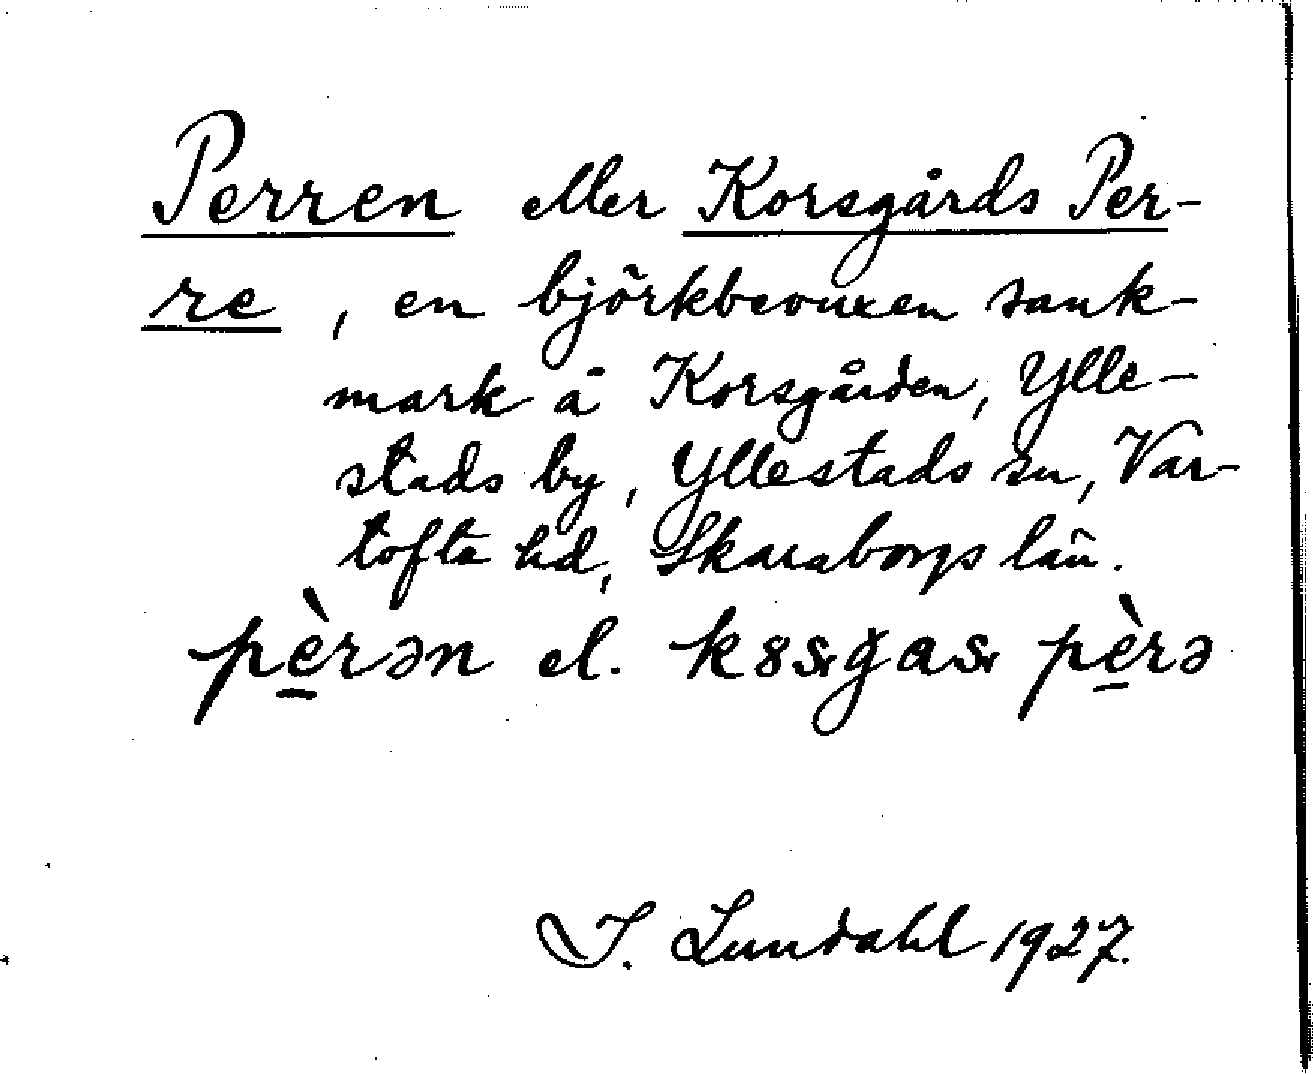 Perren eller Korsgårds Per-
re, en björkbevuxen sank-
mark å Korsgården, Ylle-
stads by, Yllestads sn, Var-
tofta hd, Skaraborgs län.
pèrən el. pèrə
I. Lundahl 1927.